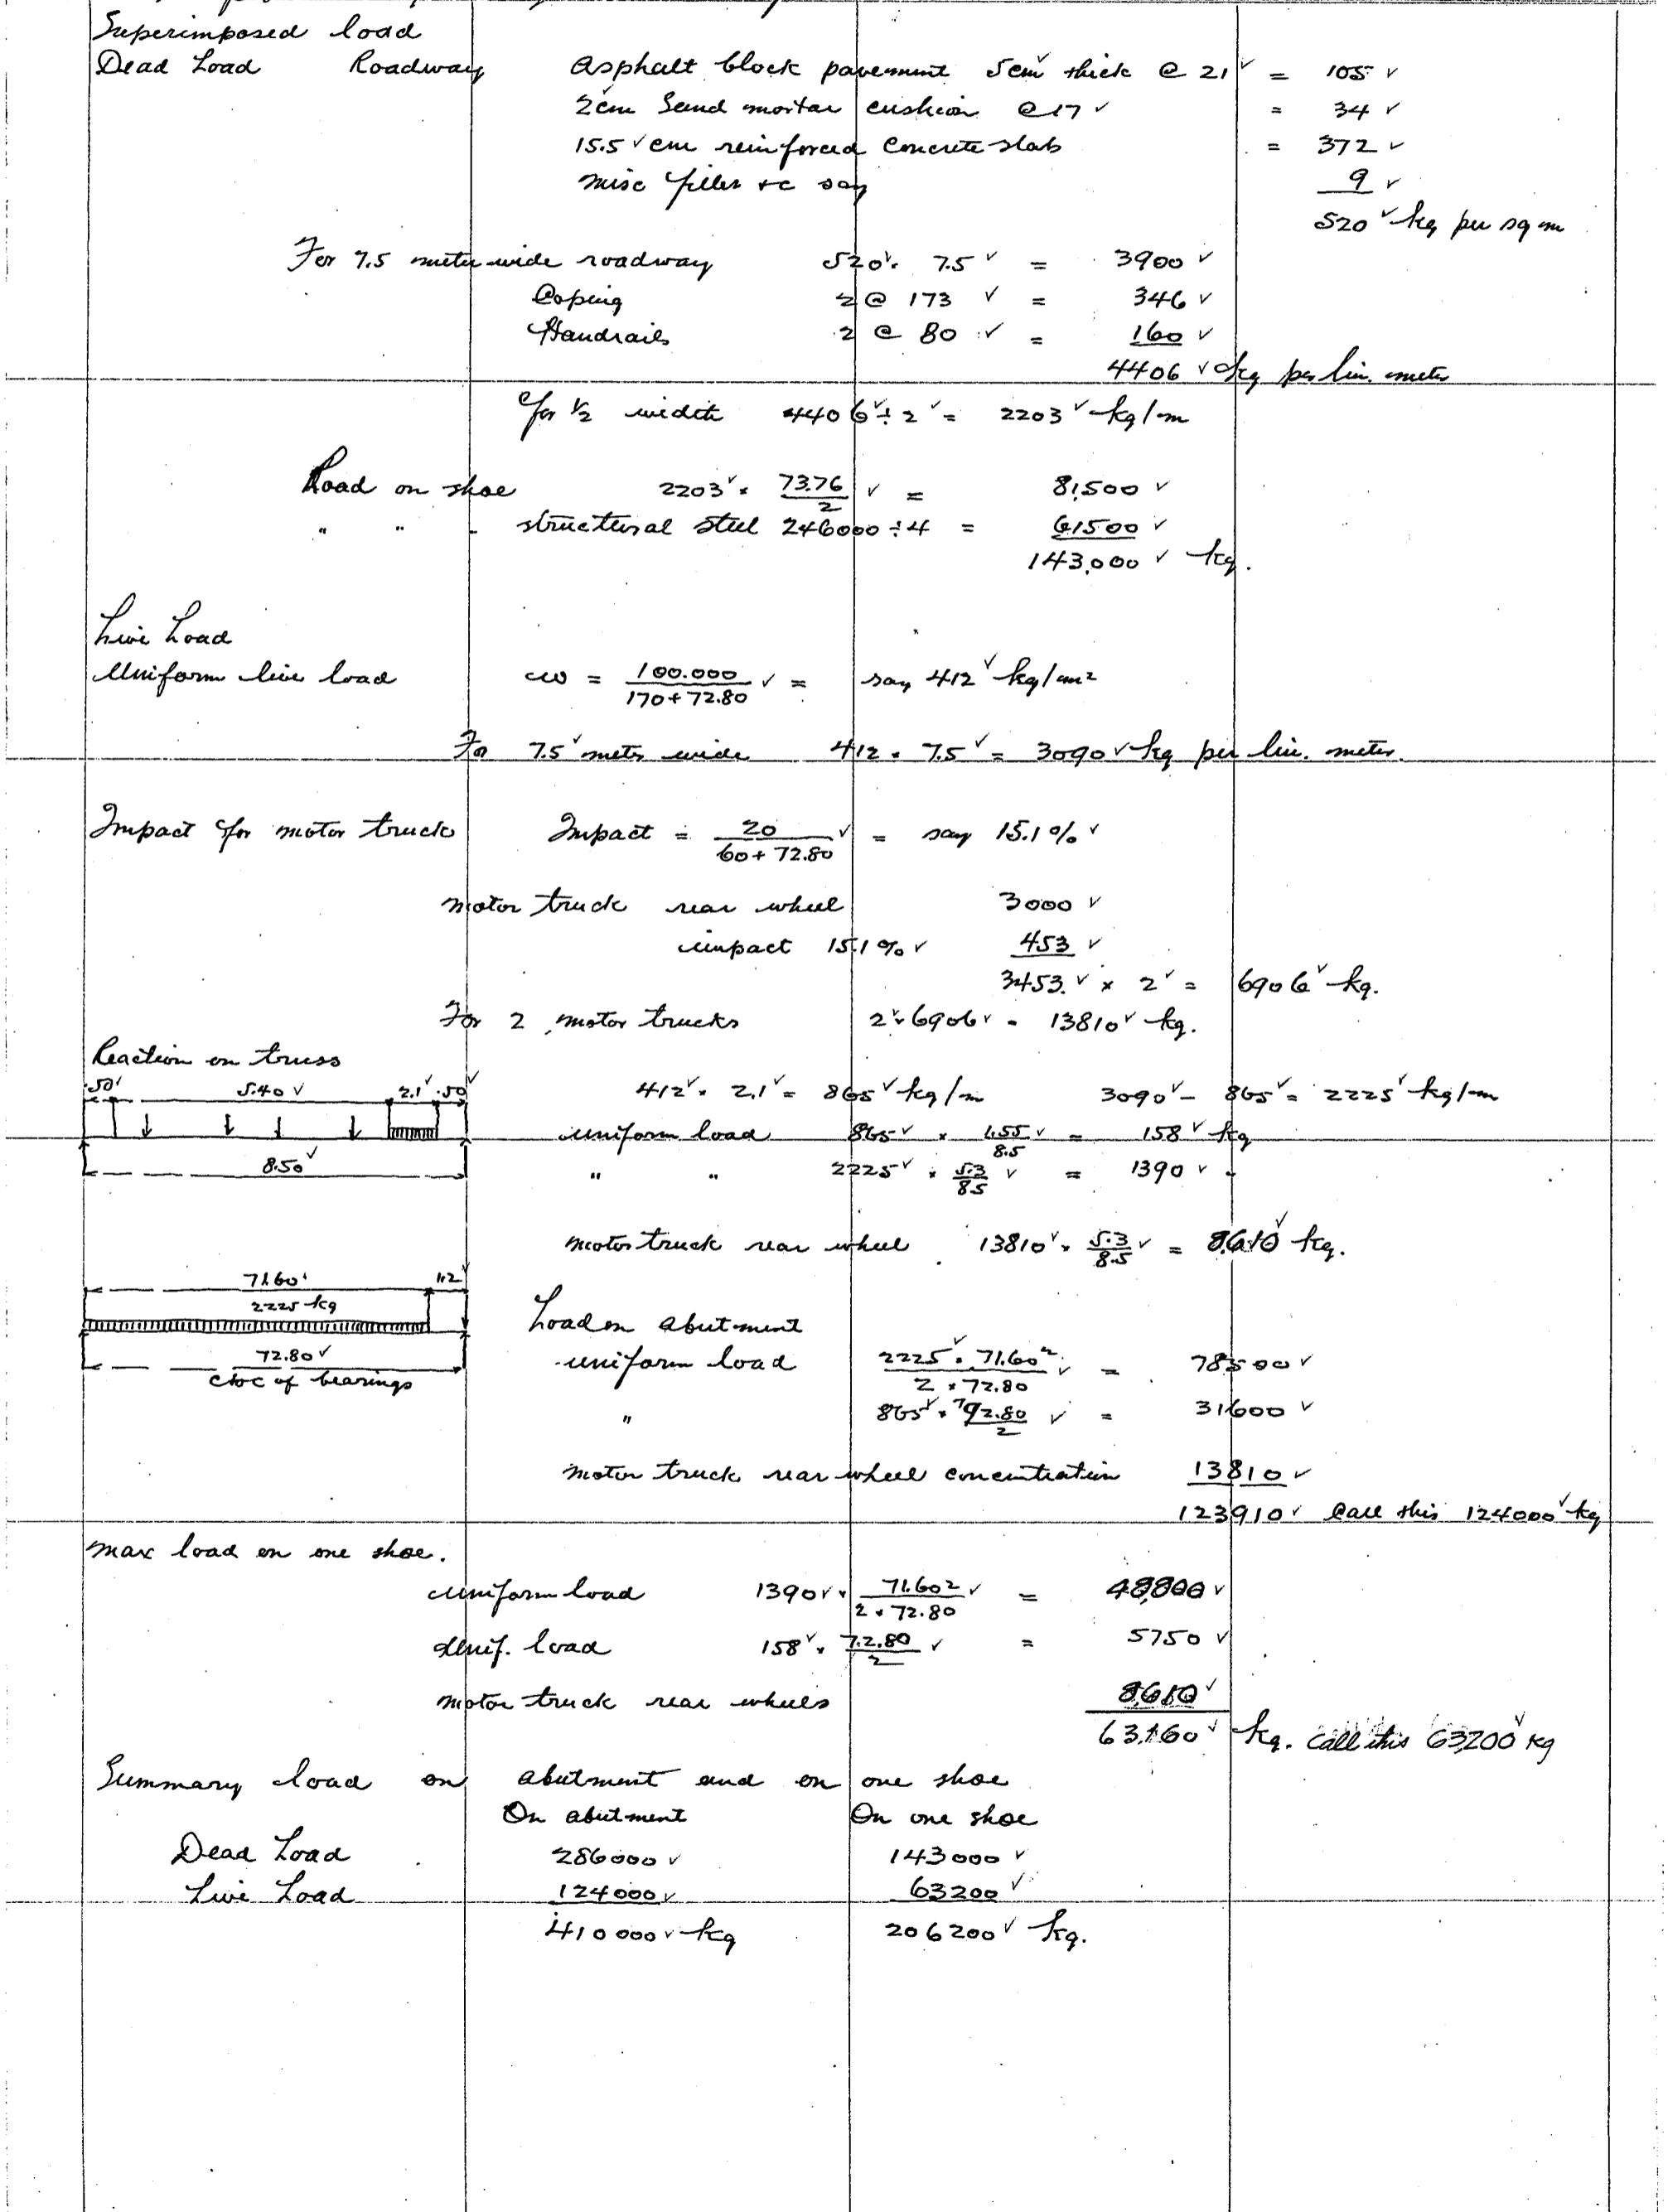 Superimposed load
Dead Load Roadway Asphalt block pavement 5cm✓ thick @ 21✓ = 105 ✓
2cm Sand mortar cushion @ 17 ✓ = 34 ✓
15.5 ✓ cm reinforced concrete slab = 372 ✓
misc filler &c say 9 ✓
520 ✓ kg per sq m
For 7.5 meter wide roadway 520✓ × 7.5 ✓ = 3900 ✓
Coping 2 @ 173 ✓ = 346 ✓
Handrails 2 @ 80 ✓ = 160 ✓
4406 ✓ kg per lin. meter
for 1/2 width 4406✓ ÷ 2✓ = 2203✓ kg/m
Load on shoe 2203✓ × 73.76/2 ✓ = 81,500 ✓
" " - structural steel 246000 ÷ 4 = 61500 ✓
143,000 ✓ kg.
Live Load
Uniform live load w = 100.000/170+72.80 ✓ = say 412✓ kg/m²
For 7.5✓ meter wide 412 × 7.5✓ = 3090✓ kg per lin. meter.
Impact for motor truck Impact = 20/60+72.80 ✓ = say 15.1% ✓
motor truck rear wheel 3000 ✓
impact 15.1% ✓ 453 ✓
3453.✓ × 2✓ = 6906✓ kg.
For 2 motor trucks 2✓ × 6906✓ = 13810✓ kg.
Reaction on truss
.50' 5.40 ✓ 2.1✓ .50✓
412✓ × 2.1✓ = 865✓ kg/m 3090✓ - 865✓ = 2225✓ kg/m
uniform load 865✓ × 1.55/8.5 ✓ = 158✓ kg
8.50✓
" " 2225✓ × 5.3/8.5 ✓ = 1390 ✓
motor truck rear wheel 13810✓ × 5.3/8.5 ✓ = 8610✓ kg.
71.60' 1.2
2225 kg
Load on abutment
72.80✓
c to c of bearings
uniform load 2225✓ × 71.60²/2 × 72.80 ✓ = 78500✓
" 865✓ × 72.80/2 ✓ = 31600 ✓
motor truck rear wheel concentration 13810✓
123910✓ Call this 124000✓ kg
max load on one shoe.
Uniform load 1390✓ × 71.60²/2 × 72.80 ✓ = 48,800 ✓
Unif. load 158✓ × 72.80/2 ✓ = 5750 ✓
motor truck rear wheels 8610✓
63,160✓ kg. Call this 63,200✓ kg
Summary load on abutment and on one shoe
On abutment On one shoe
Dead Load 286000 ✓ 143000 ✓
Live Load 124000✓ 63200✓
410000✓ kg 206200✓ kg.